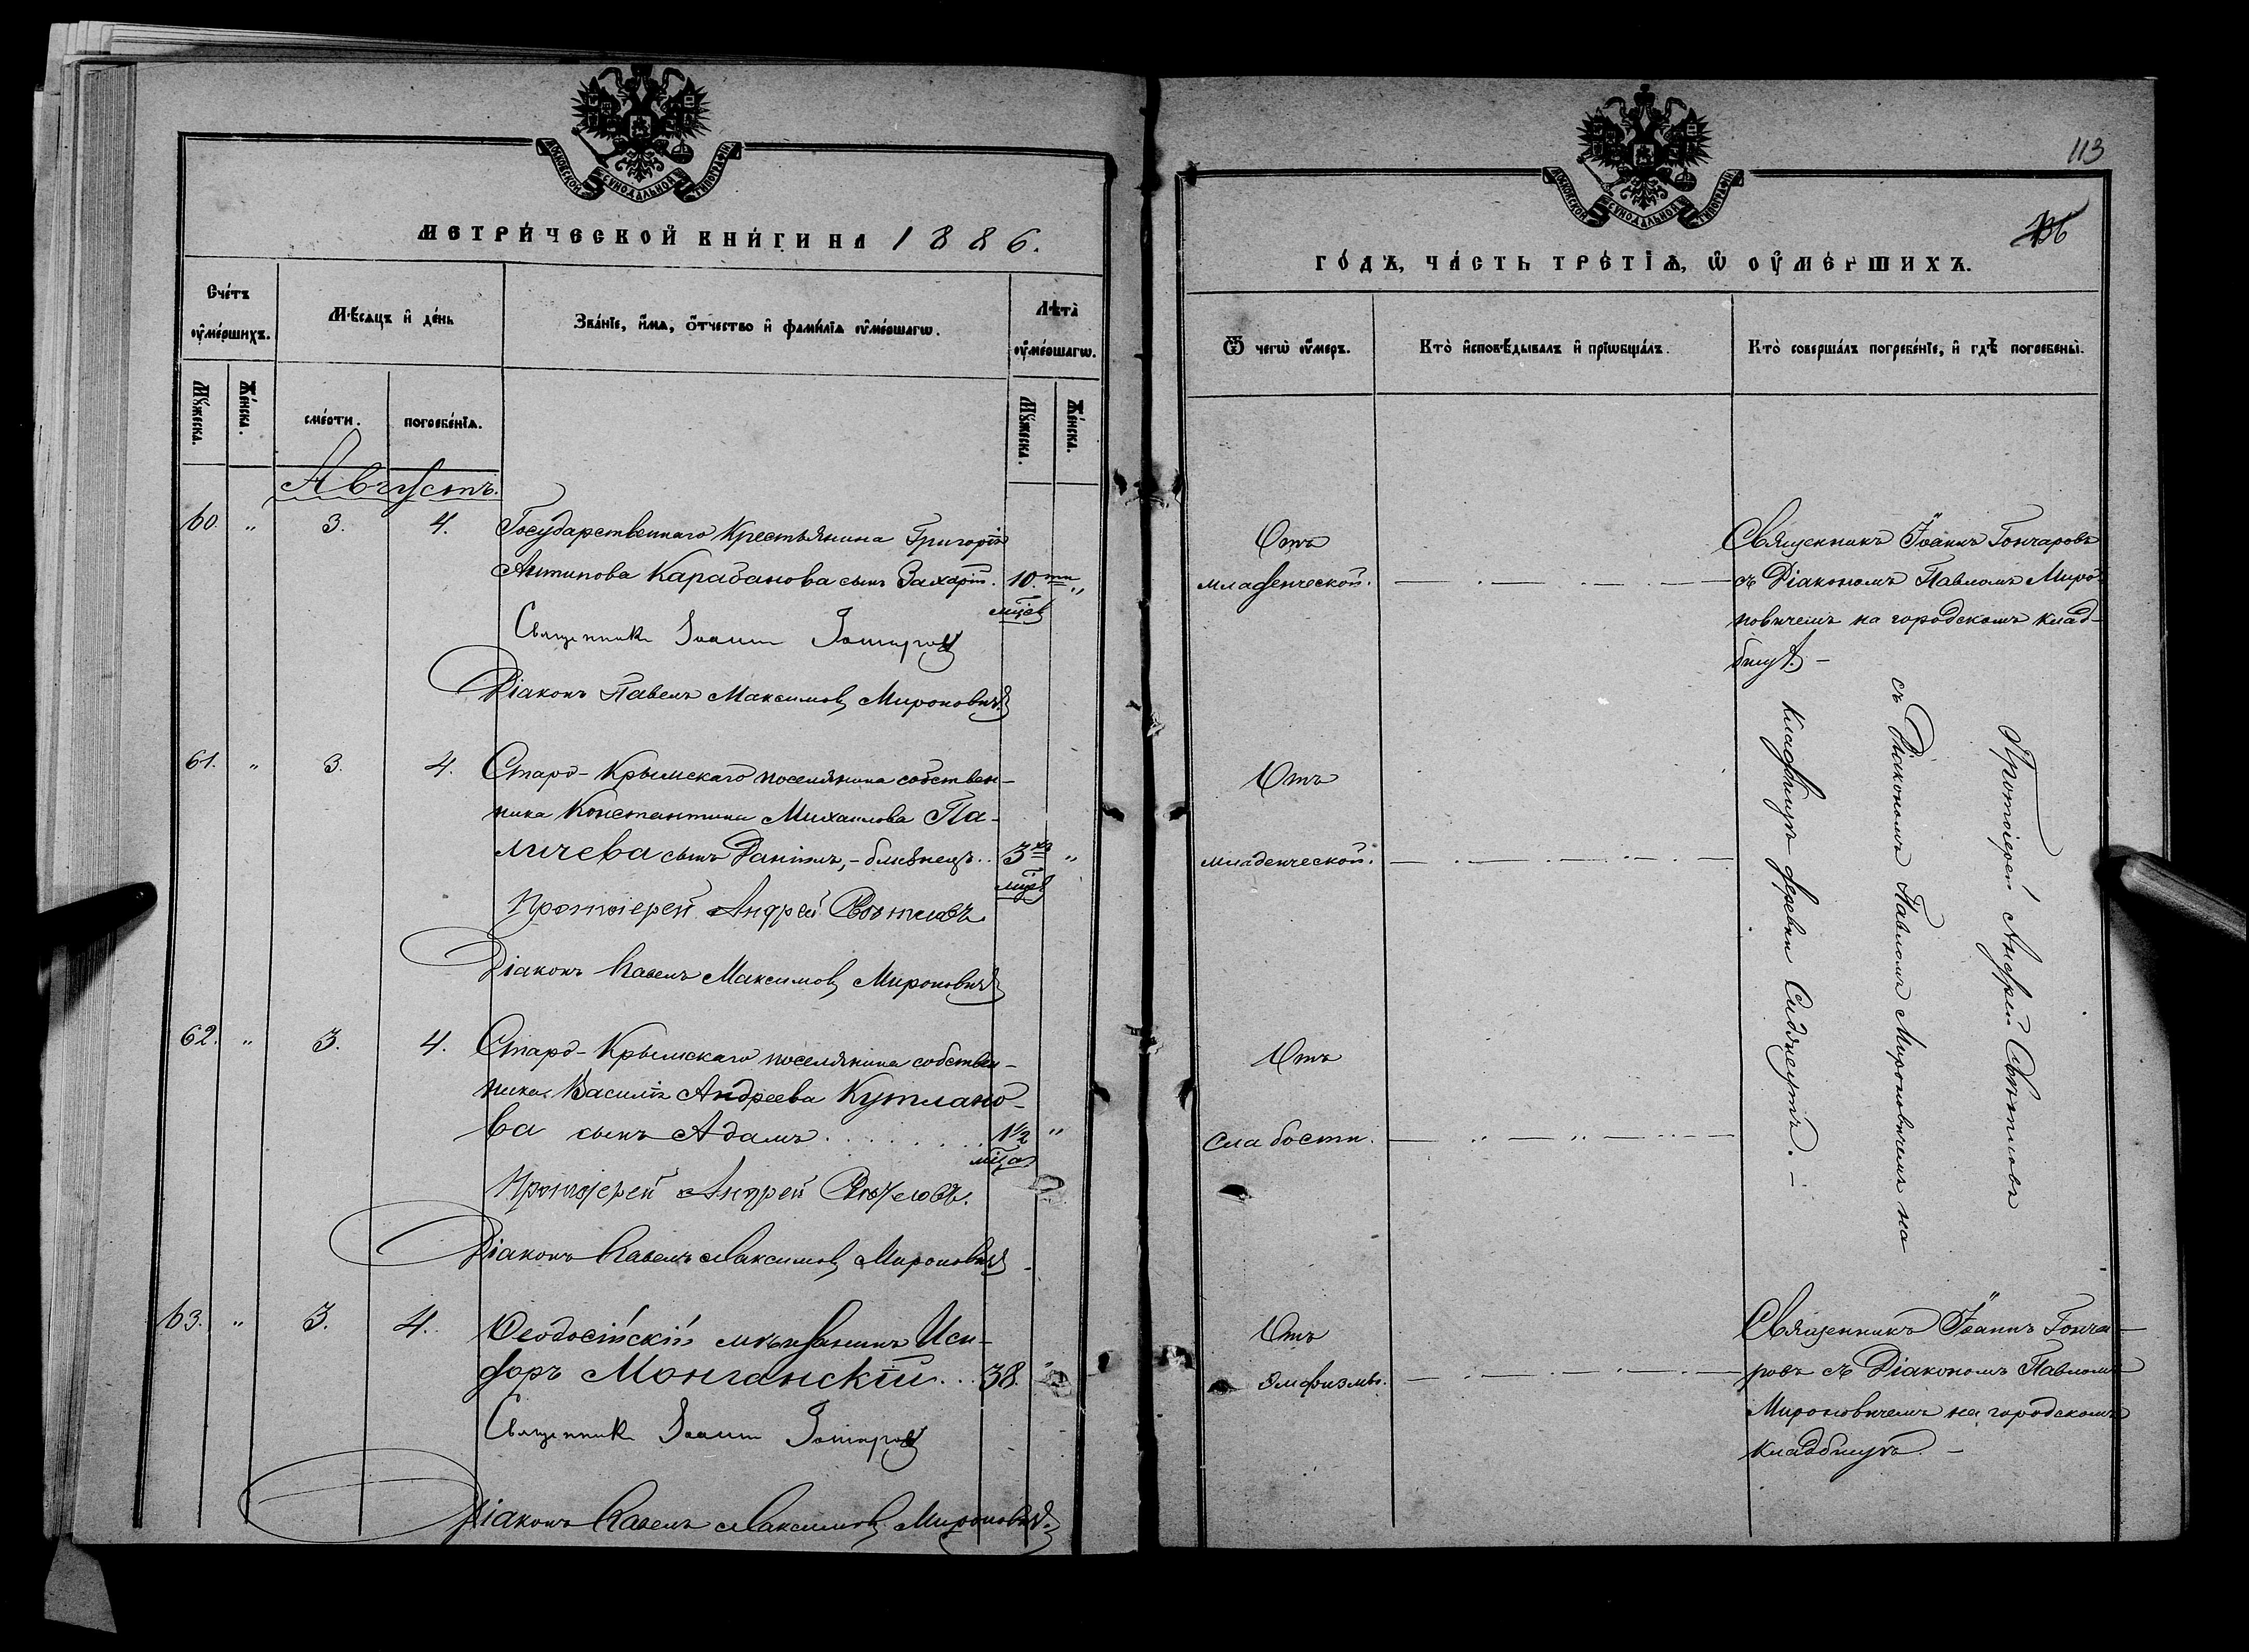 МОСКОВСКОЙ СѴНОДАЛЬНОЙ ТИПОГРАФІИ
МЕТРИ́ЧЕСКОЙ КНИ́ГИ НА 1886.
Сче́тъ ᲂу҆ме́ршихъ.
Мѣ́сяцъ и҆ де́нь
Зва́нїе, и҆́мѧ, ѻ҆́тчество и҆ фами́лїѧ ᲂу҆ме́ршагѡ.
Лѣта̀ ᲂу҆ме́ршагѡ.
Мꙋ́жеска.
Же́нска.
сме́рти.
погребе́нїѧ.
Мꙋ́жеска.
Же́нска.
Августъ.
60. " 3. 4. Государственнаго Крестьянина Григорія
Антипова Карабанова сынъ Захарій. 10ти "
мцев
Священникъ Іоаннъ Гончаровъ
Діаконъ Павелъ Максимовъ Мироновичъ
61. " 3. 4. Старо-Крымскаго поселянина собствен-
ника Константина Михаилова Па-
личева сынъ Даніилъ, - близнецъ.. 3хъ "
мцев
Протоіерей Андрей Свѣтловъ
Діаконъ Павелъ Максимовъ Мироновичъ
62. " 3. 4. Старо-Крымскаго поселянина собствен-
ника Василія Андреева Кутлано-
ва сынъ Адамъ . . . . . . . . 1½ "
мца
Протоіерей Андрей Свѣтловъ.
Діаконъ Павелъ Максимовъ Мироновичъ
63. " 3. 4. Ѳеодосійскій мѣщанинъ Иси-
доръ Монганскій... 38. "
Священникъ Іоаннъ Гончаровъ
Діаконъ Павелъ Максимовъ Мироновичъ.
113
МОСКОВСКОЙ СѴНОДАЛЬНОЙ ТИПОГРАФІИ
ГО́ДЪ, ЧА́СТЬ ТРЕ́ТІѦ, Ѡ҆ ОУ҆МЕ́РШИХЪ.
Ѿ чегѡ̀ ᲂу҆́меръ.
Кто̀ и҆сповѣ́дывалъ и҆ прїѡбща́лъ.
Кто̀ соверша́лъ погребе́нїе, и҆ гдѣ̀ погребены̀.
Отъ
младенческой.
Священникъ Іоаннъ Гончаровъ
съ Діакономъ Павломъ Миро-
новичемъ на городскомъ клад-
бищѣ. -
Отъ
младенческой.
Протоіерей Андрей Свѣтловъ
съ Діакономъ Павломъ Мироновичемъ на
кладбищѣ деревни Сидянеутъ. -
Отъ
слабости.
Отъ
эмфизмы.
Священникъ Іоаннъ Гонча-
ровъ съ Діакономъ Павломъ
Мироновичемъ на городскомъ
кладбищѣ. -